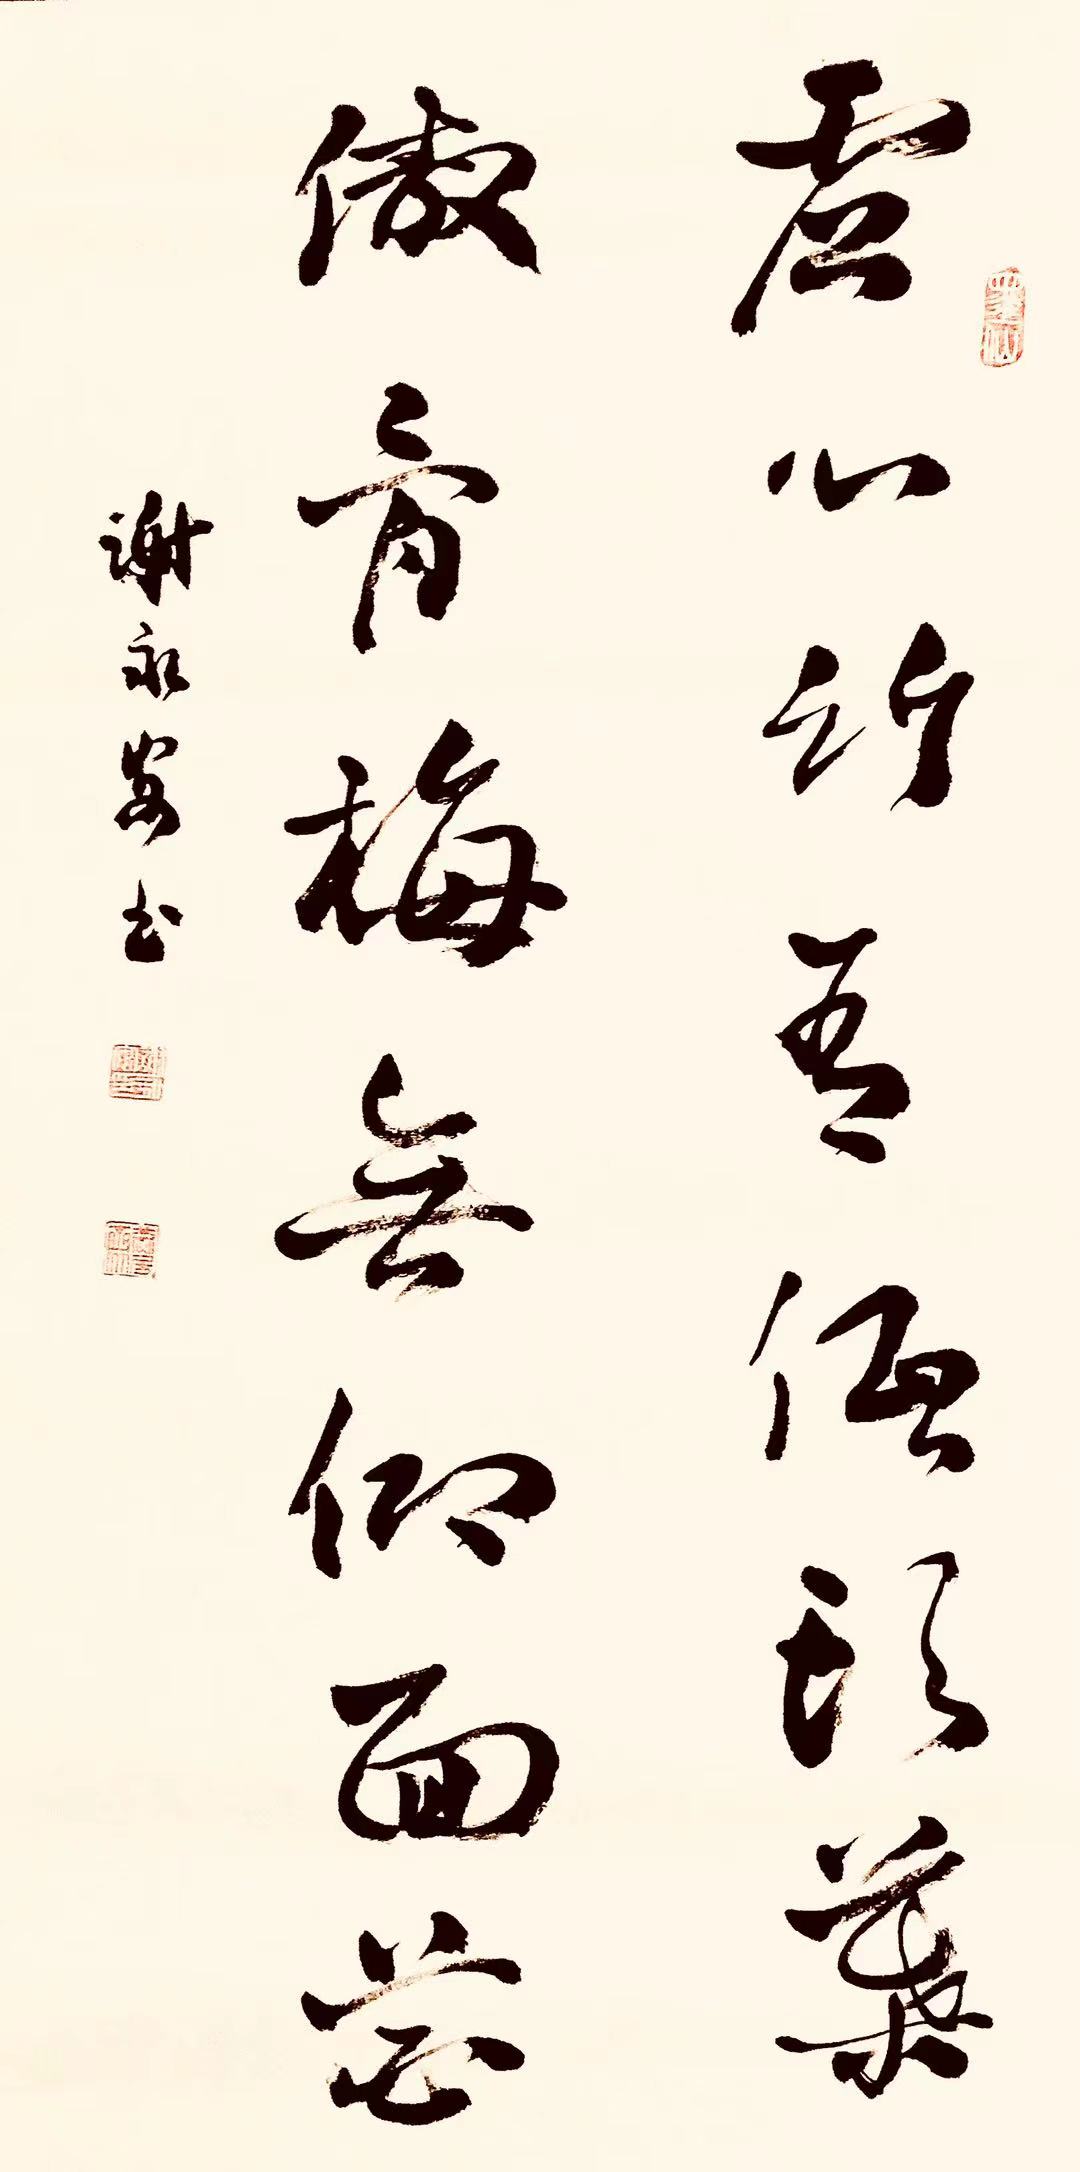 虚心竹有低头葉
傲骨梅無仰面花
谢永安书